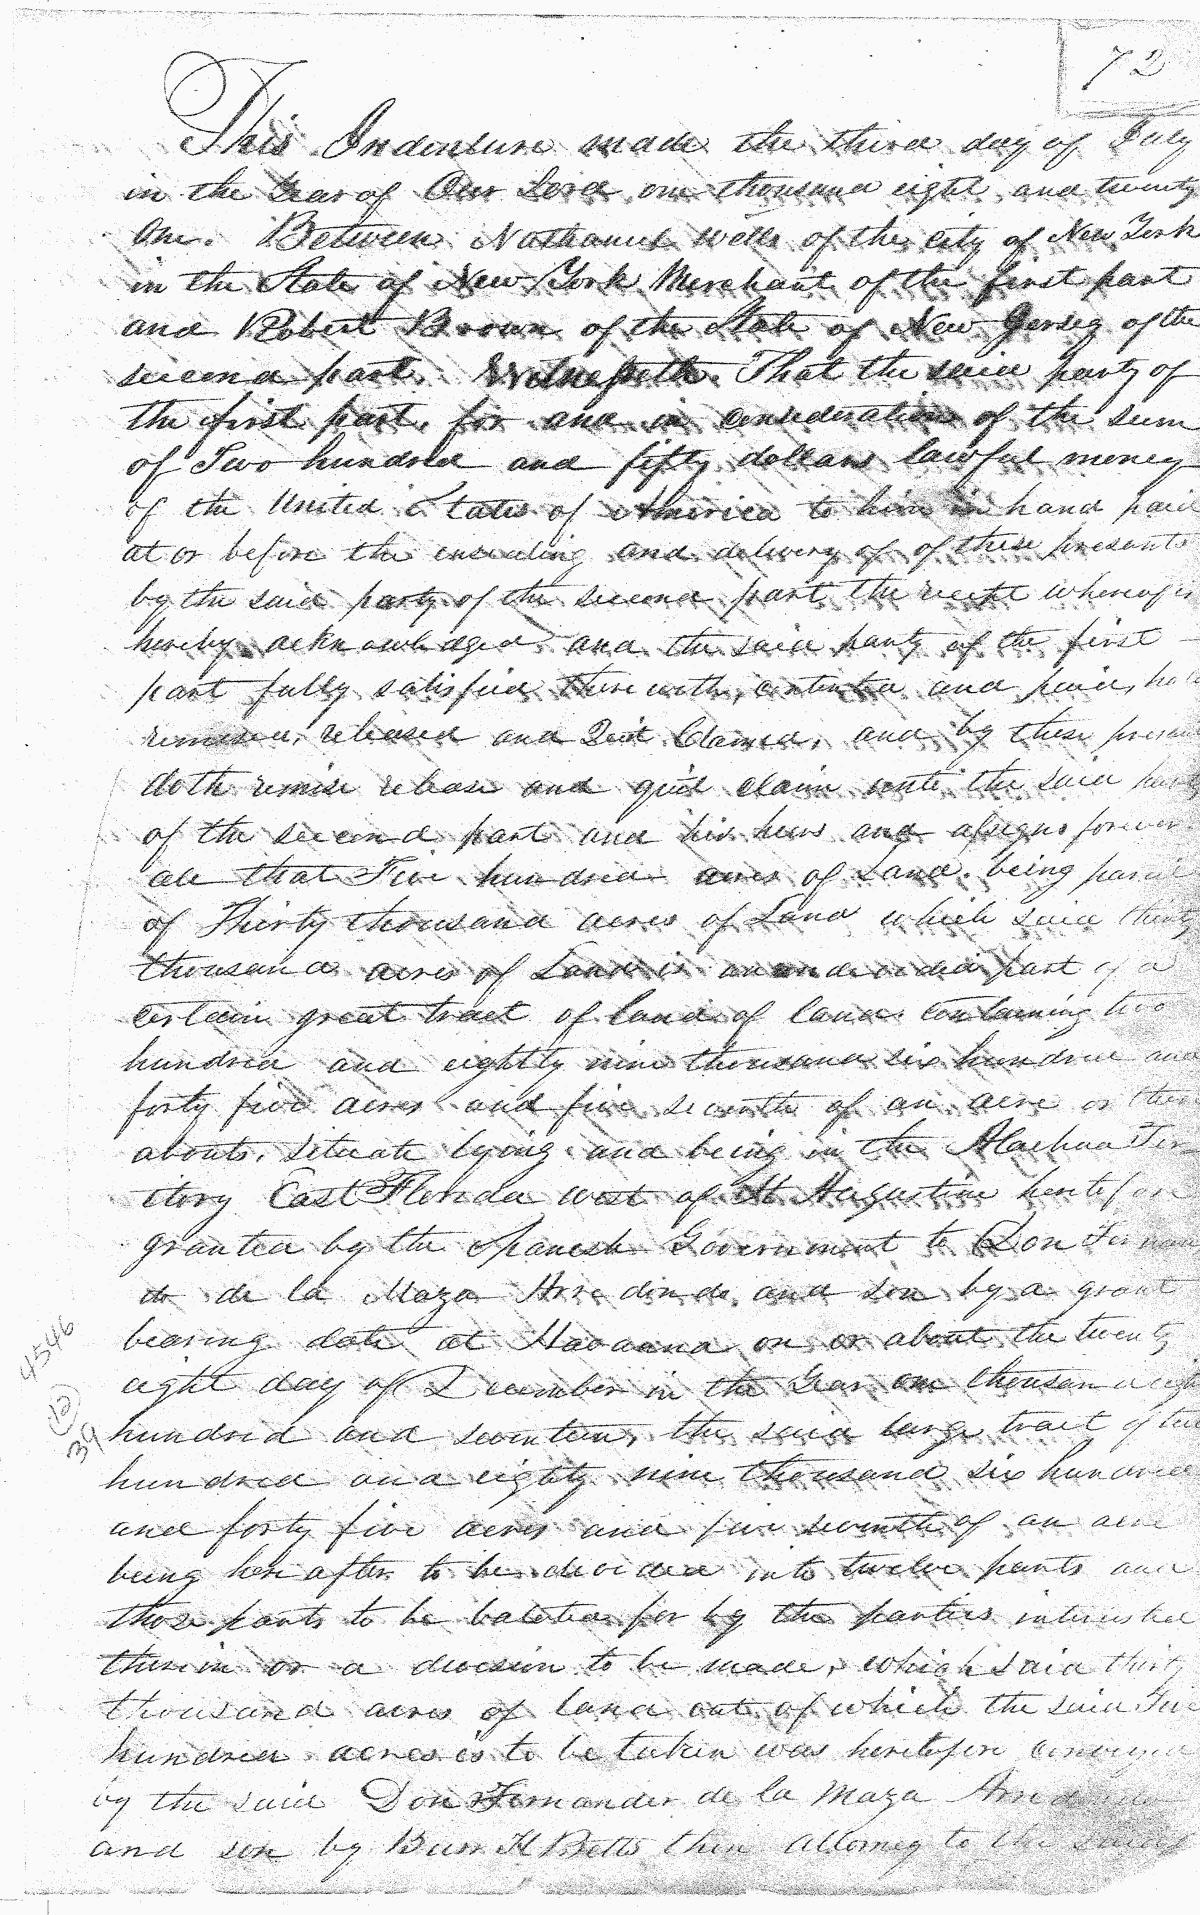 72
This Indenture made the third day of July
in the Year of Our Lord one thousand eight and twenty
One. Between Nathaniel Wells of the city of New York
in the State of New York Merchant of the first part
and Robert Brown of the State of New Jersey of the
second part. Witnesseth. That the said party of
the first part, for and in consideration of the sum
of Two hundred and fifty dollars lawful money
of the United States of America to him in hand paid
at or before the ensealing and delivery of of these presents
by the said party of the second part the receipt whereof is
hereby acknowledged, and the said party of the first
part fully satisfied therewith, contented and paid, hath
remised, released and Quit Claimed, and by these presents
doth remise release and quit claim unto the said party
of the second part and his heirs and assigns forever
all that Five hundred acres of Land. being parcel
of Thirty thousand acres of Land which said thirty
thousand acres of Land is an undivided part of a
certain great tract of land of land containing two
hundred and eightly nine thousand six hundred and
forty five acres and five seventh of an acre or there
abouts, situate lying and being in the Alachua Ter-
itory East Florida west of St Augustine heretofore
granted by the Spanish Government to Don Fernan
do de la Maza Arredindo, and son by a grant
bearing date at Havanna on or about the twenty
eight day of December in the Year one thousand eight
hundred and seventeen, the said large tract of two
hundred and eighty nine thousand six hundred
and forty five acres and five seventh of an acre
being hereafter to be divided into twelve parts and
those parts to be balloted for by the parties interested
therein or a division to be made, which said thirty
thousand acres of land out of which the said Five
hundred acres is to be taken was heretofore conveyed
by the said Don Fernander de la Maza Arredondo
and son by Burr H Betts then attorney to the said
4546
12
39